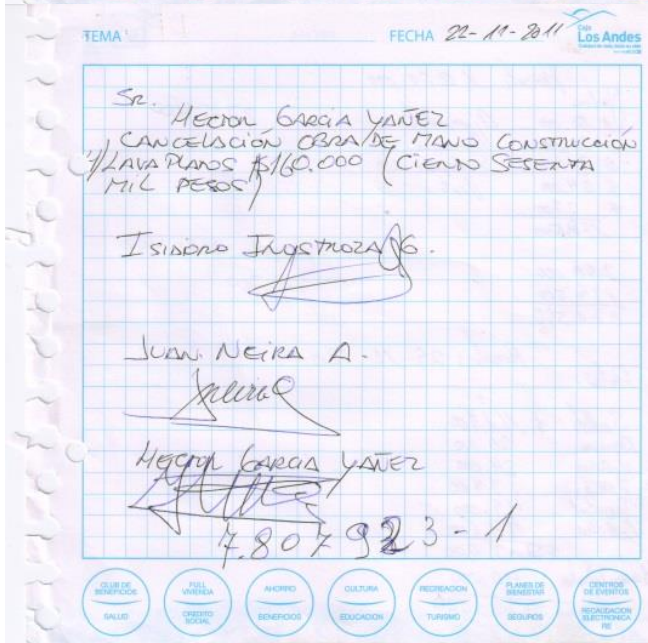 TEMA
FECHA 22-11-2011
Caja
Los Andes
Sr.
HECTOR GARCIA YAÑEZ
CANCELACIÓN OBRA/DE MANO CONSTRUCCIÓN
LAVA PLATOS $160.000 (CIENTO SESENTA
MIL PESOS)
ISIDORO INOSTROZA G.
JUAN NEIRA A.
HECTOR GARCIA YAÑEZ
7.807923-1
CLUB DE BENEFICIOS
SALUD
FULL VIVIENDA
CREDITO SOCIAL
AHORRO
BENEFICIOS
CULTURA
EDUCACION
RECREACION
TURISMO
PLANES DE BIENESTAR
SEGUROS
CENTROS DE EVENTOS
RECAUDACION ELECTRONICA